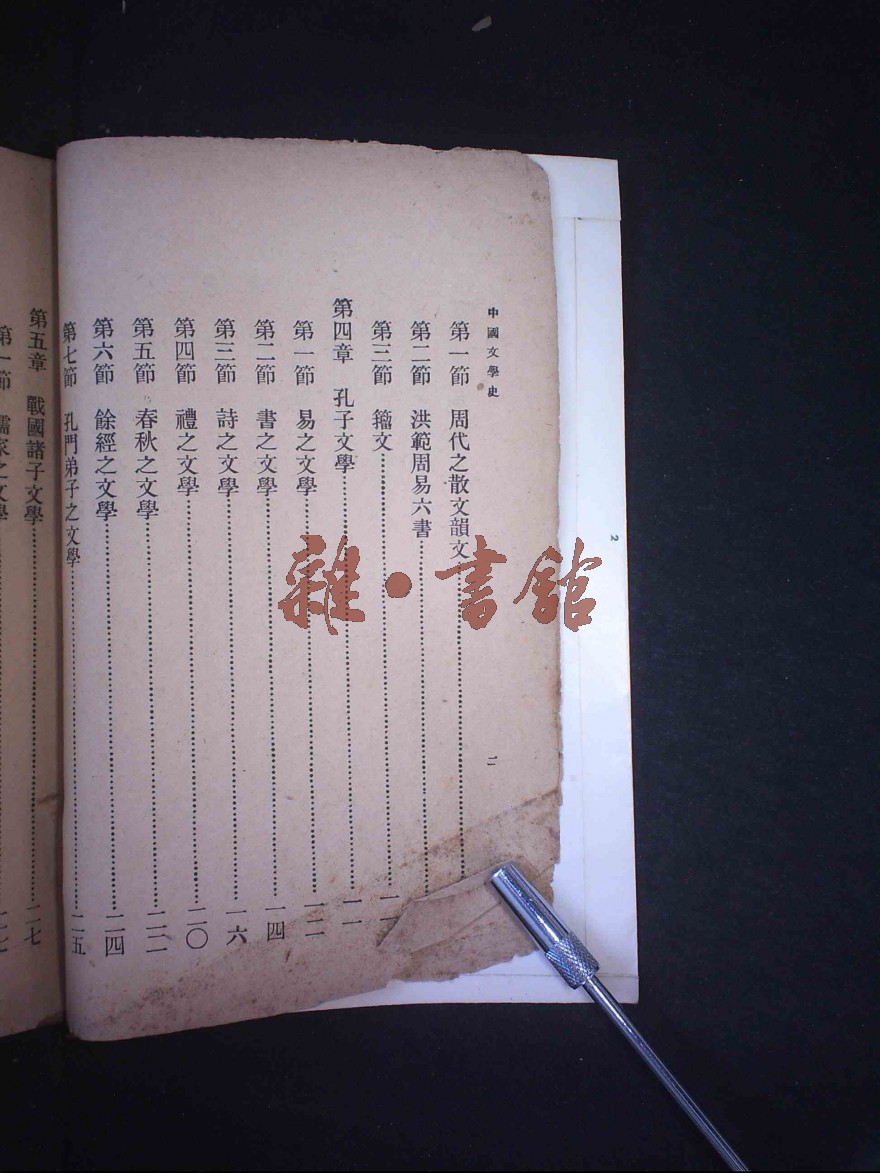 中國文學史
二
第一節 周代之散文韻文
第二節 洪範周易六書
第三節 籀文
第四章 孔子文學 一一
第一節 易之文學 一二
第二節 書之文學 一四
第三節 詩之文學 一六
第四節 禮之文學 二〇
第五節 春秋之文學 二二
第六節 餘經之文學 二四
第七節 孔門弟子之文學 二五
第五章 戰國諸子文學 二七
第一節 儒家之文學
雜·書館
2